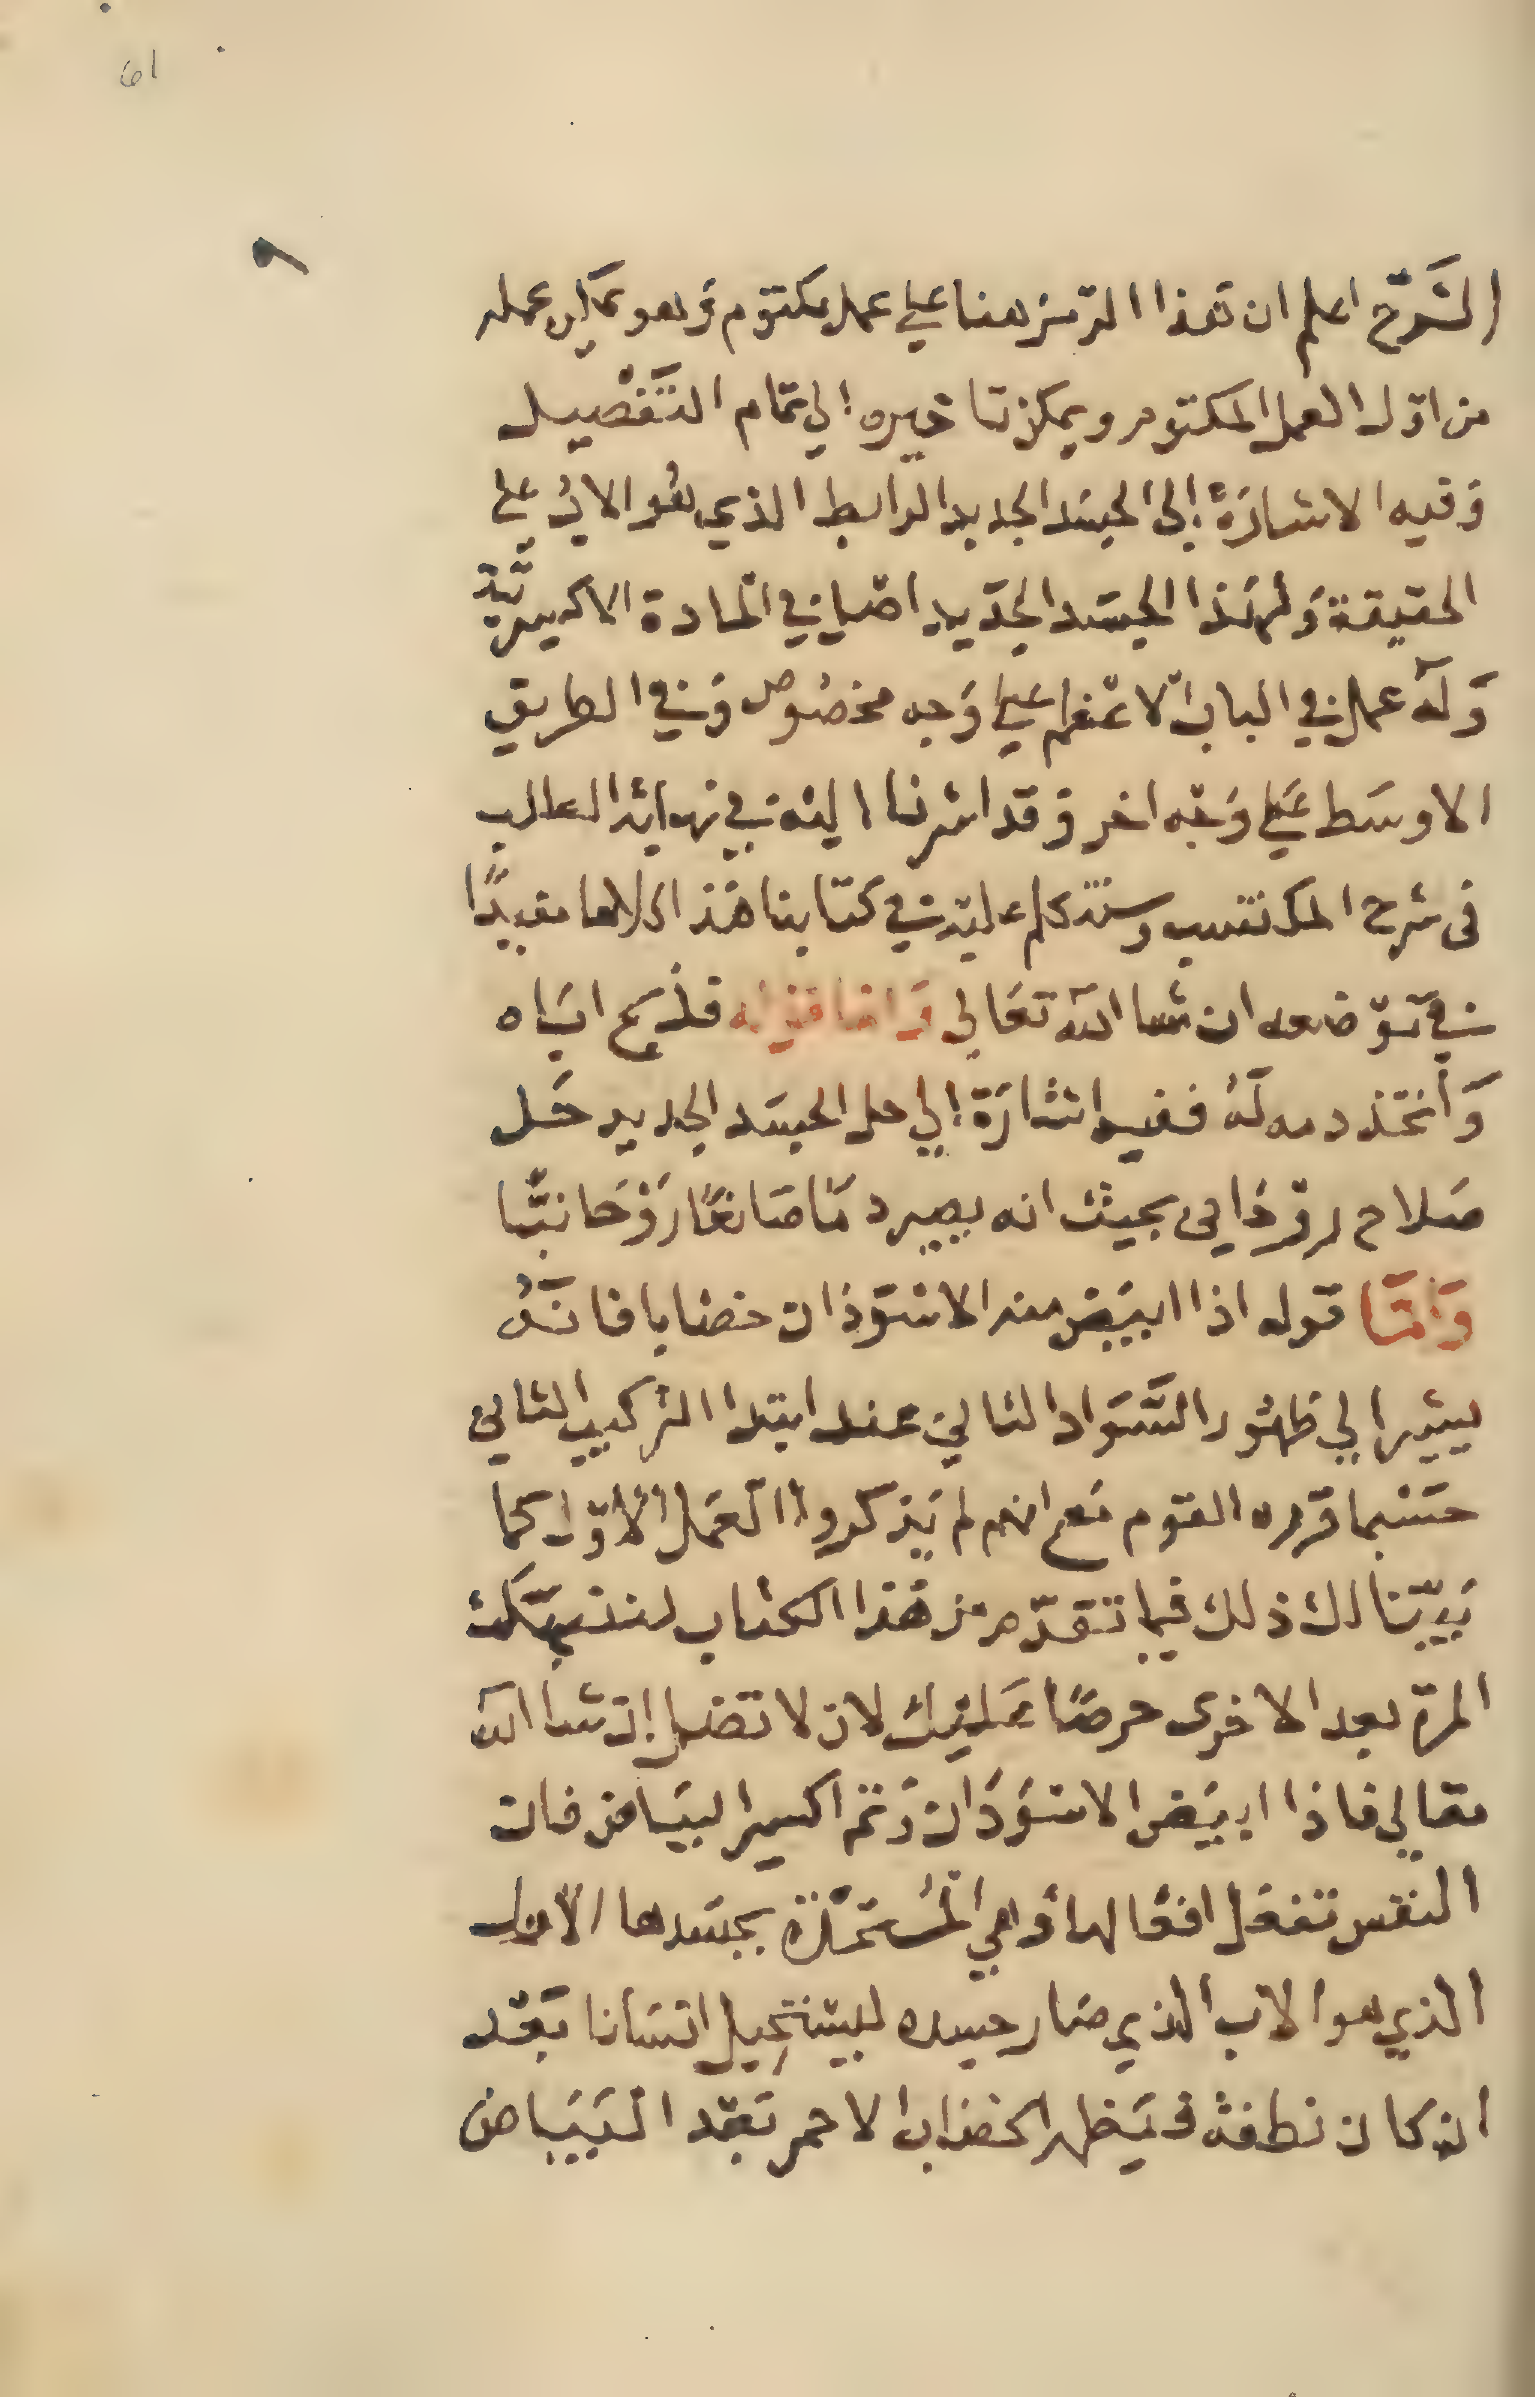 61
٩
الشرح اعلم ان هذا الرمز هنا علي عمل مكتوم وهو يمكن عمله
من اول العمل المكتوم ويمكن تاخيره الي تمام التفصيل
وفيه الاشارة الى الجسد الجديد الرابط الذي هو الاب علي
الحقيقة ولهذا الجسد الجديد اصل في المادة الاكسيرية
وله عمل في الباب الاعظم علي وجه مخصوص وفي الطريق
الاوسط علي وجه اخر وقد اشرنا اليه في نهاية الطالب
فى شرح المكتسب وسنتكلم عليه في كتابنا هذا كلاما مفيدًا
في توضعه ان شا الله تعالي واما قوله فلذبح اباه
واتخذ دمه له ففيه اشارة الي حل الجسد الجديد حل
صلاح لا بحيث انه يصير دما صابغًا روحانيا
واما قوله اذا ابيض منه الاسوذان خضابا فانه
يشير الي ظهور السواد الثاني عند ابتدا التركيب الثاني
حسبما قرره القوم مع انهم لم يذكروا العمل الاول كما
بينا لك ذلك فيما تقدم من هذا الكتاب لننبهك
المرة بعد الاخرى حرصًا عليك لان لا تضل إن شا الله
تعالي فاذا ابيض الاسودان وتم اكسير البياض فان
النفس تفعل افعالها وهي المستحلة بجسدها الاول
الذي هو الاب الذي صار جسده ليستحيل انسانا بعد
ان كان نطفة فيظهر الخضاب الاحمر بعد البياض